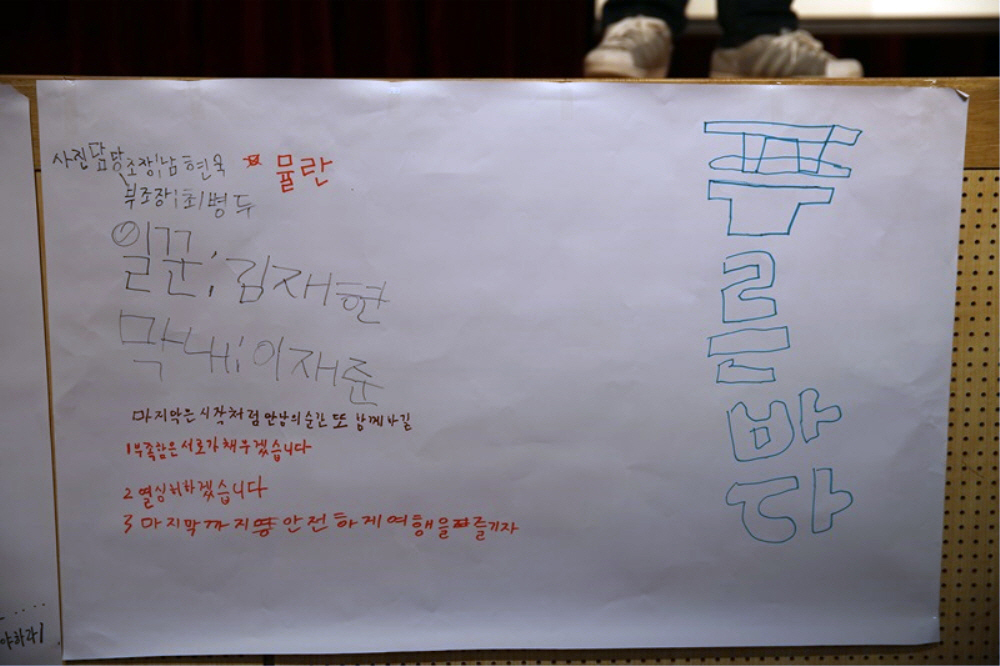 사진담당 조장;남현욱 뮬란
부조장;최병두
일꾼;김재현
막내;이재준
마지막은 시작처럼 만남의 순간 또 함께 하길
1 부족함은 서로가 채우겠습니다
2 열심히하겠습니다
3 마지막까지 안전하게 여행을 즐기자
푸른바다
야하라!